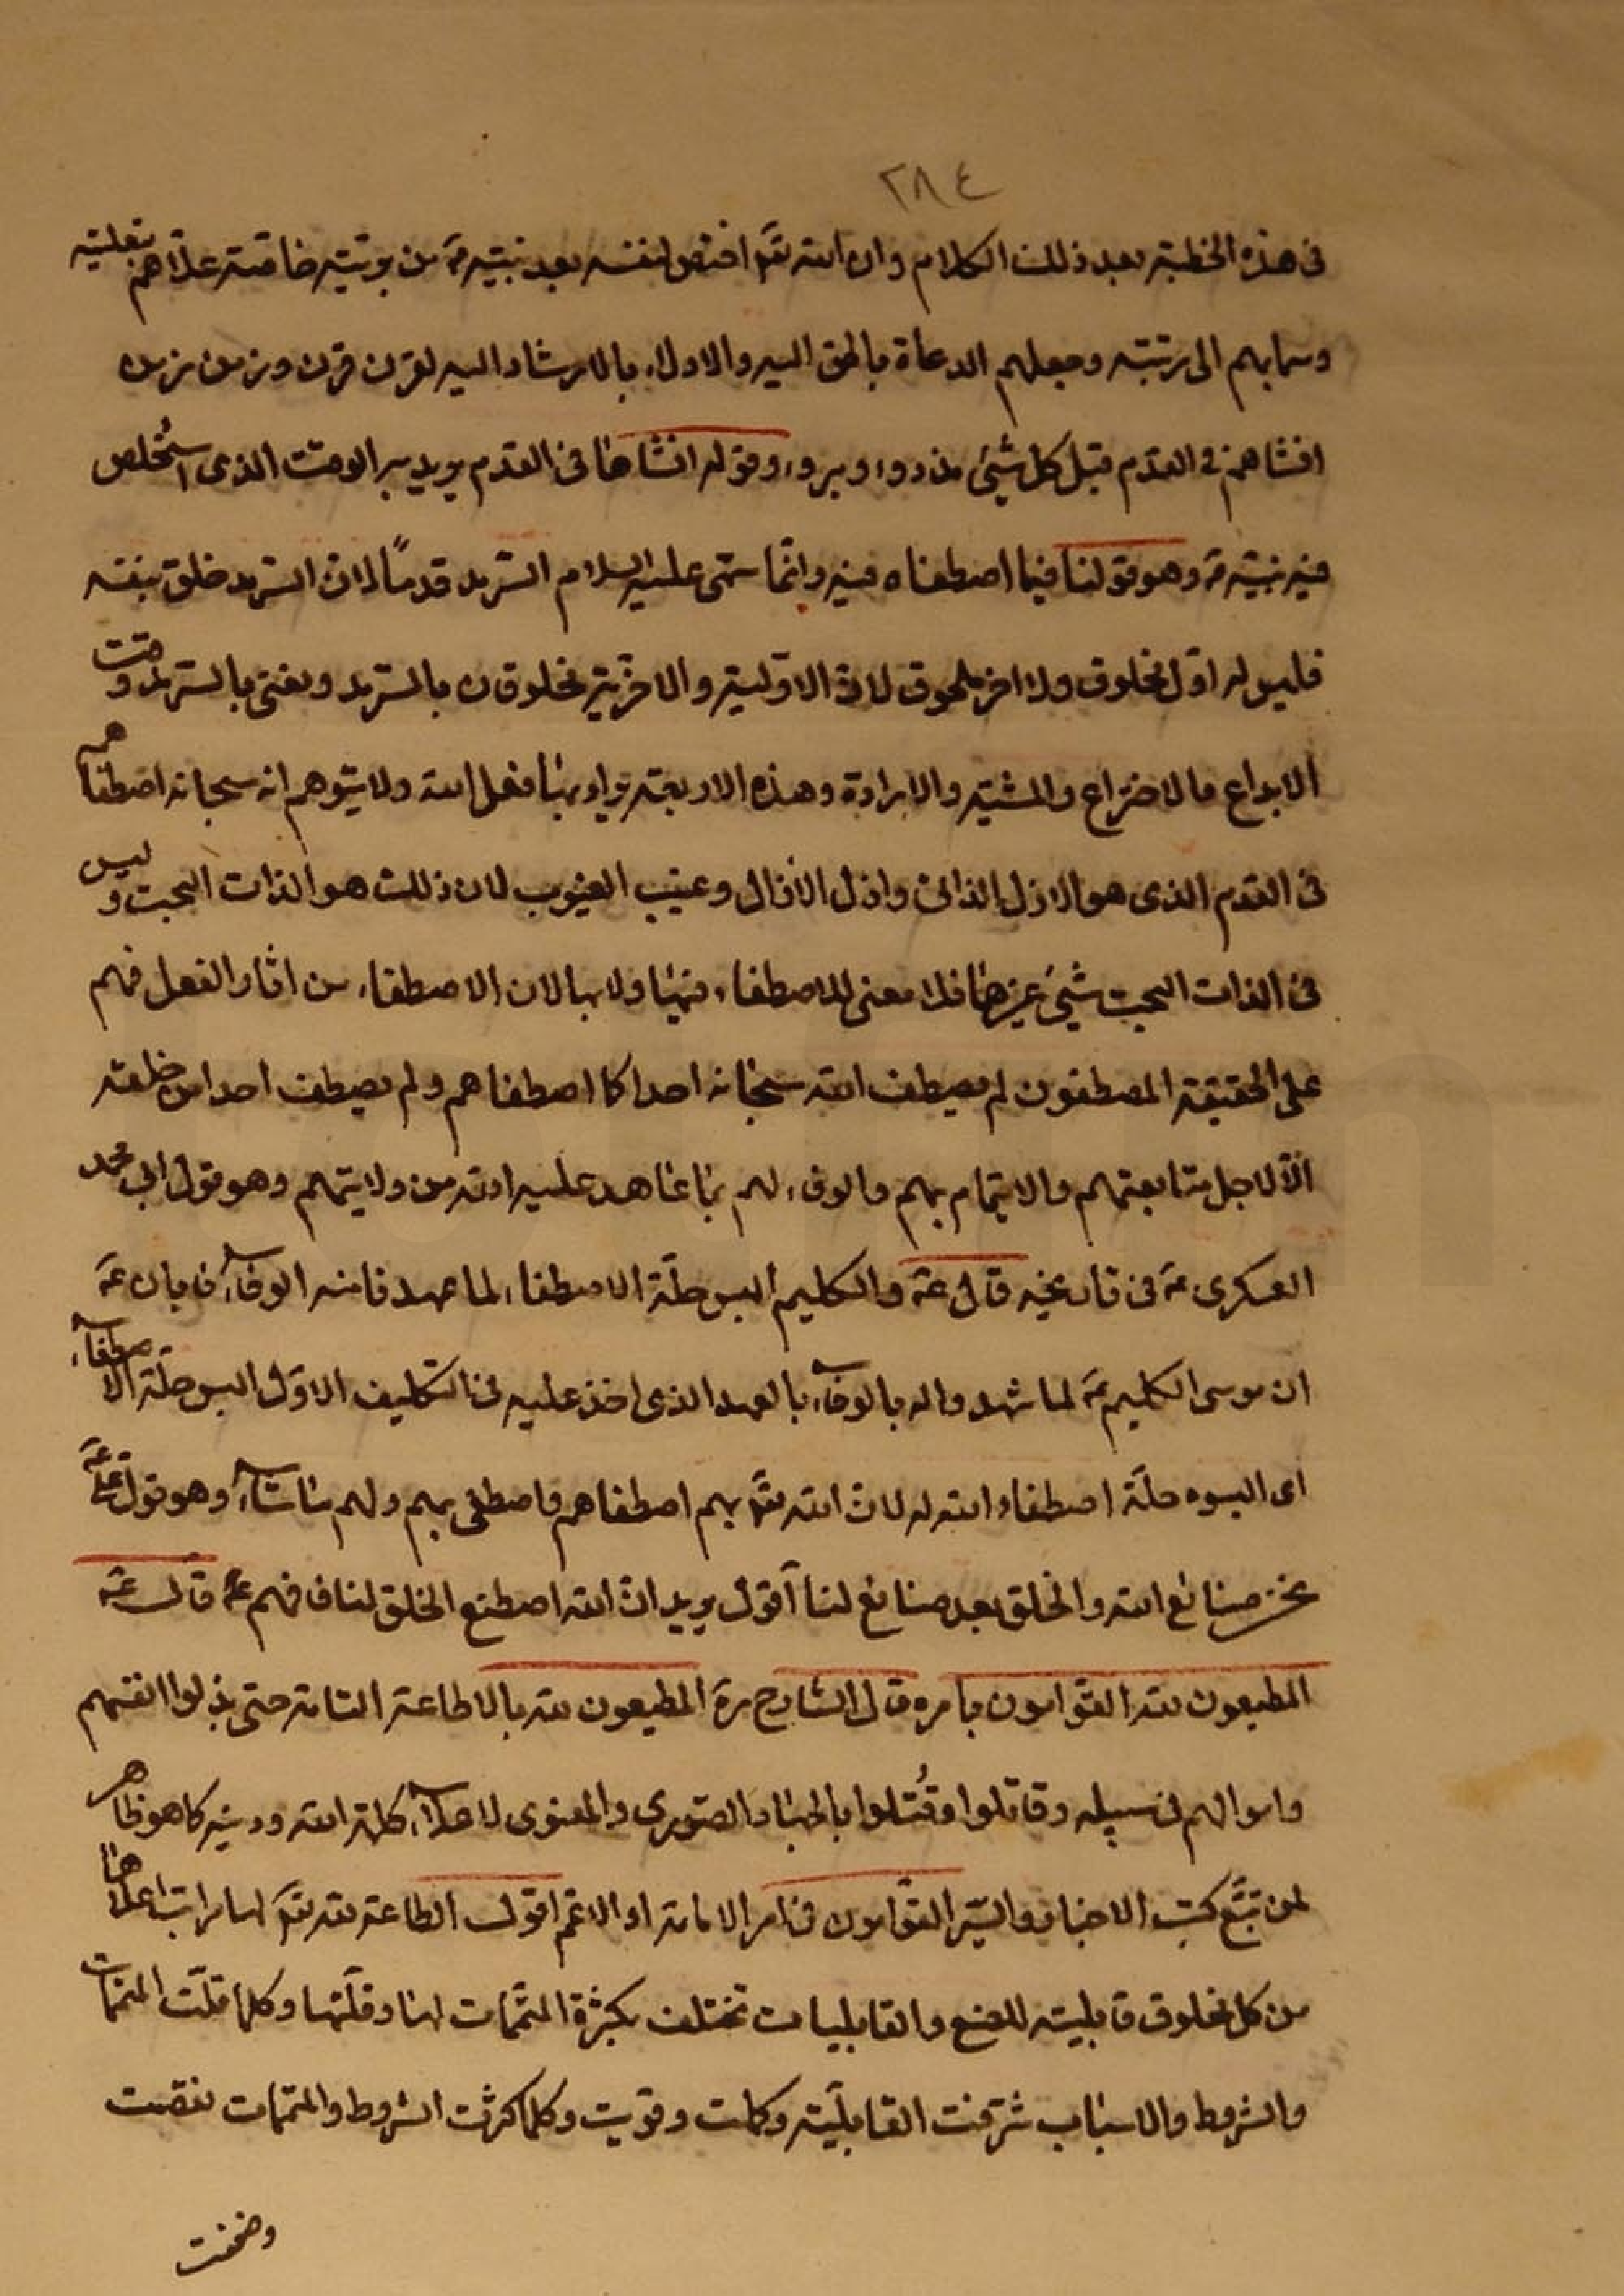 ٢٨٤
فى هذه الخطبة بعد ذلك الكلام وان الله تعَ اختص لنفسه بعد نبيّه صَ من بريّته خاصّة علاهم بتعليته
وسما بهم الى رتبته وجعلهم الدعاة بالحق اليه والادلاء بالارشاد اليه لقرن قرن وزمن زمن
انشاهم فى القدم قبل كل شيئ مذروء ومبروء وقوله انشاها فى القدم يريد به الوقت الذى استُخلص
فيه نبيّه صَ وهو قولنا فيما اصطفاه فيه وانّما سمّى عليه السلام السّرمد قدماً لانّ السّرمد خلق بنفسه
فليس له اوّل مخلوق ولا اخر ملحوق لانّ الاوّلية والاخريّة مخلوقان بالسّرمد ونعنى بالسّرمد وقت
الابداع والاختراع والمشيّة والارادة وهذه الاربعة يراد بها فعل الله ولا يتوهم انه سبحانه اصطفاهم
فى القدم الذى هو الازل الذاتى وازل الازال وغيب الغيوب لان ذلك هو الذات البحت وليس
فى الذات البحت شيئ غيرها فلا معنى للاصطفاء فيها ولا بها لان الاصطفاء من اثار الفعل فهم
على الحقيقة المصطفون لم يصطف الله سبحانه احدا كما اصطفاهم ولم يصطف احدا من خلقه
الّا لاجل متابعتهم والايتمام بهم والوفاء لهم بما عاهد عليه الله من ولايتهم وهو قول ابى محمد
العسكرى عَ فى تاريخه قال عَ والكليم البس حلّة الاصطفاء لما عهدنا منه الوفاء فابان عَ
ان موسى الكليم عَ لما شهد واله بالوفاء بالعهد الذى اخذ عليه فى التكليف الاوّل البس حلّة الاصطفاء
اى البسوه حلّة اصطفاء الله له لانّ الله تعَ بهم اصطفاهم واصطفى بهم ولهم من شاء وهو قول علىّ عَ
نحن صنائع الله والخلق بعد صنائع لنا اقول يريد انّ الله اصطنع الخلق لنا فافهم عَ قال عَ
المطيعون لله القوّامون بامره قال الشارح ره المطيعون لله بالاطاعة التامة حتى بذلوا انفسهم
واموالهم فى سبيله وقاتلوا وقُتلوا بالجهاد الصّورى والمعنوى لاعلاء كلمة الله ودينه كما هو ظاهر
لمن تتبّع كتب الاخبار والسّير القوّامون فى امر الامامة او الاعمّ اقول الطاعة لله تعَ لها مراتب اعلاها
من كل مخلوق قابليته للصنع والقابليات تختلف بكثرة المتمّمات لها وقلّتها وكلما قلّت المتمّمات
والشروط والاسباب شرفت القابليّة وكملت وقويت وكلما كثرت الشروط والمتمّمات نقصت
وضعفت